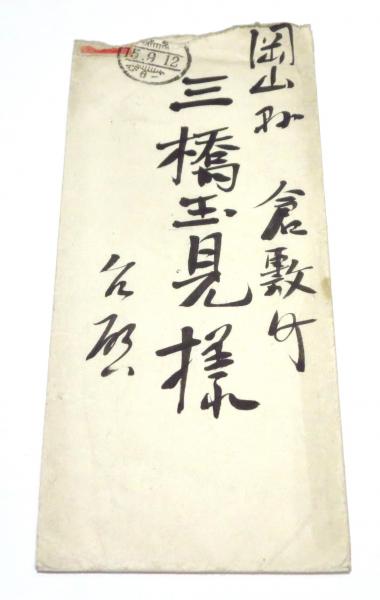 岡山縣 倉敷町
三橋玉見様
台啓
15.9.12